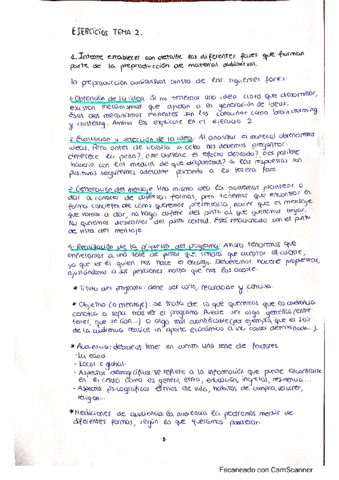 EJERCICIOS TEMA 2.
1. Intente establecer con detalle las diferentes fases que forman
parte de la preproducción de material audiovisual.
La preproducción audiovisual consta de las siguientes fases:
1. Obtención de la idea. Si no tenemos una idea clara que desarrollar,
existen mecanismos que ayudan a la generación de ideas.
Esos dos mecanismos existentes son los conocidos como brainstorming
y clustering. Ambos los explicaré en el ejercicio 2.
2. Evaluación y selección de la idea. Al analizar el material obtenemos
ideas. Pero antes de llevarlo a cabo nos debemos preguntar:
¿merece la pena? ¿se obtiene el efecto deseado? ¿Es posible
hacerlo con los medios de que disponemos? Si las respuestas son
positivas seguiremos adelante pasando a la tercera fase.
3. Generación del mensaje. Una misma idea la podemos plantear o
dar a conocer de diversas formas, pero tenemos que encontrar la
forma concreta del como queremos presentarla, hacer que el mensaje
que vamos a dar, no haga diferir del punto al que queremos llegar.
No queremos desviarnos del punto central. Está relacionado con el punto
de vista del mensaje.
4. Realización de la propuesta del programa. Ahora tenemos que
enfrentarnos a una serie de pasos que tendrá que aceptar el cliente,
ya que es el quien nos hace el encargo. Deberemos hacerle propuestas,
ajustándonos a las peticiones
• Título del programa: debe ser corto, recordable y conciso.
• Objetivo (o mensaje): se trata de lo que queremos que la audiencia
conozca o sepa tras ver el programa. Puede ser algo genérico (entre
tener, que se rían...) o algo más cuantificable (por ejemplo que el 20%
de la audiencia realice un aporte económico a
• Audiencia: debemos tener en cuenta una serie de factores.
- La edad
- Local o global.
- Aspectos demográficos: se refiere a la información que puede encontrarse
en el censo como es género, etnia, educación, ingresos, residencia...
- Aspectos psicográficos: estilos de vida, hábitos de compra, valores,
religión...
• Mediciones de audiencia: La audiencia la podremos medir de
diferentes formas, según lo que queramos
-1-
Escaneado con CamScanner